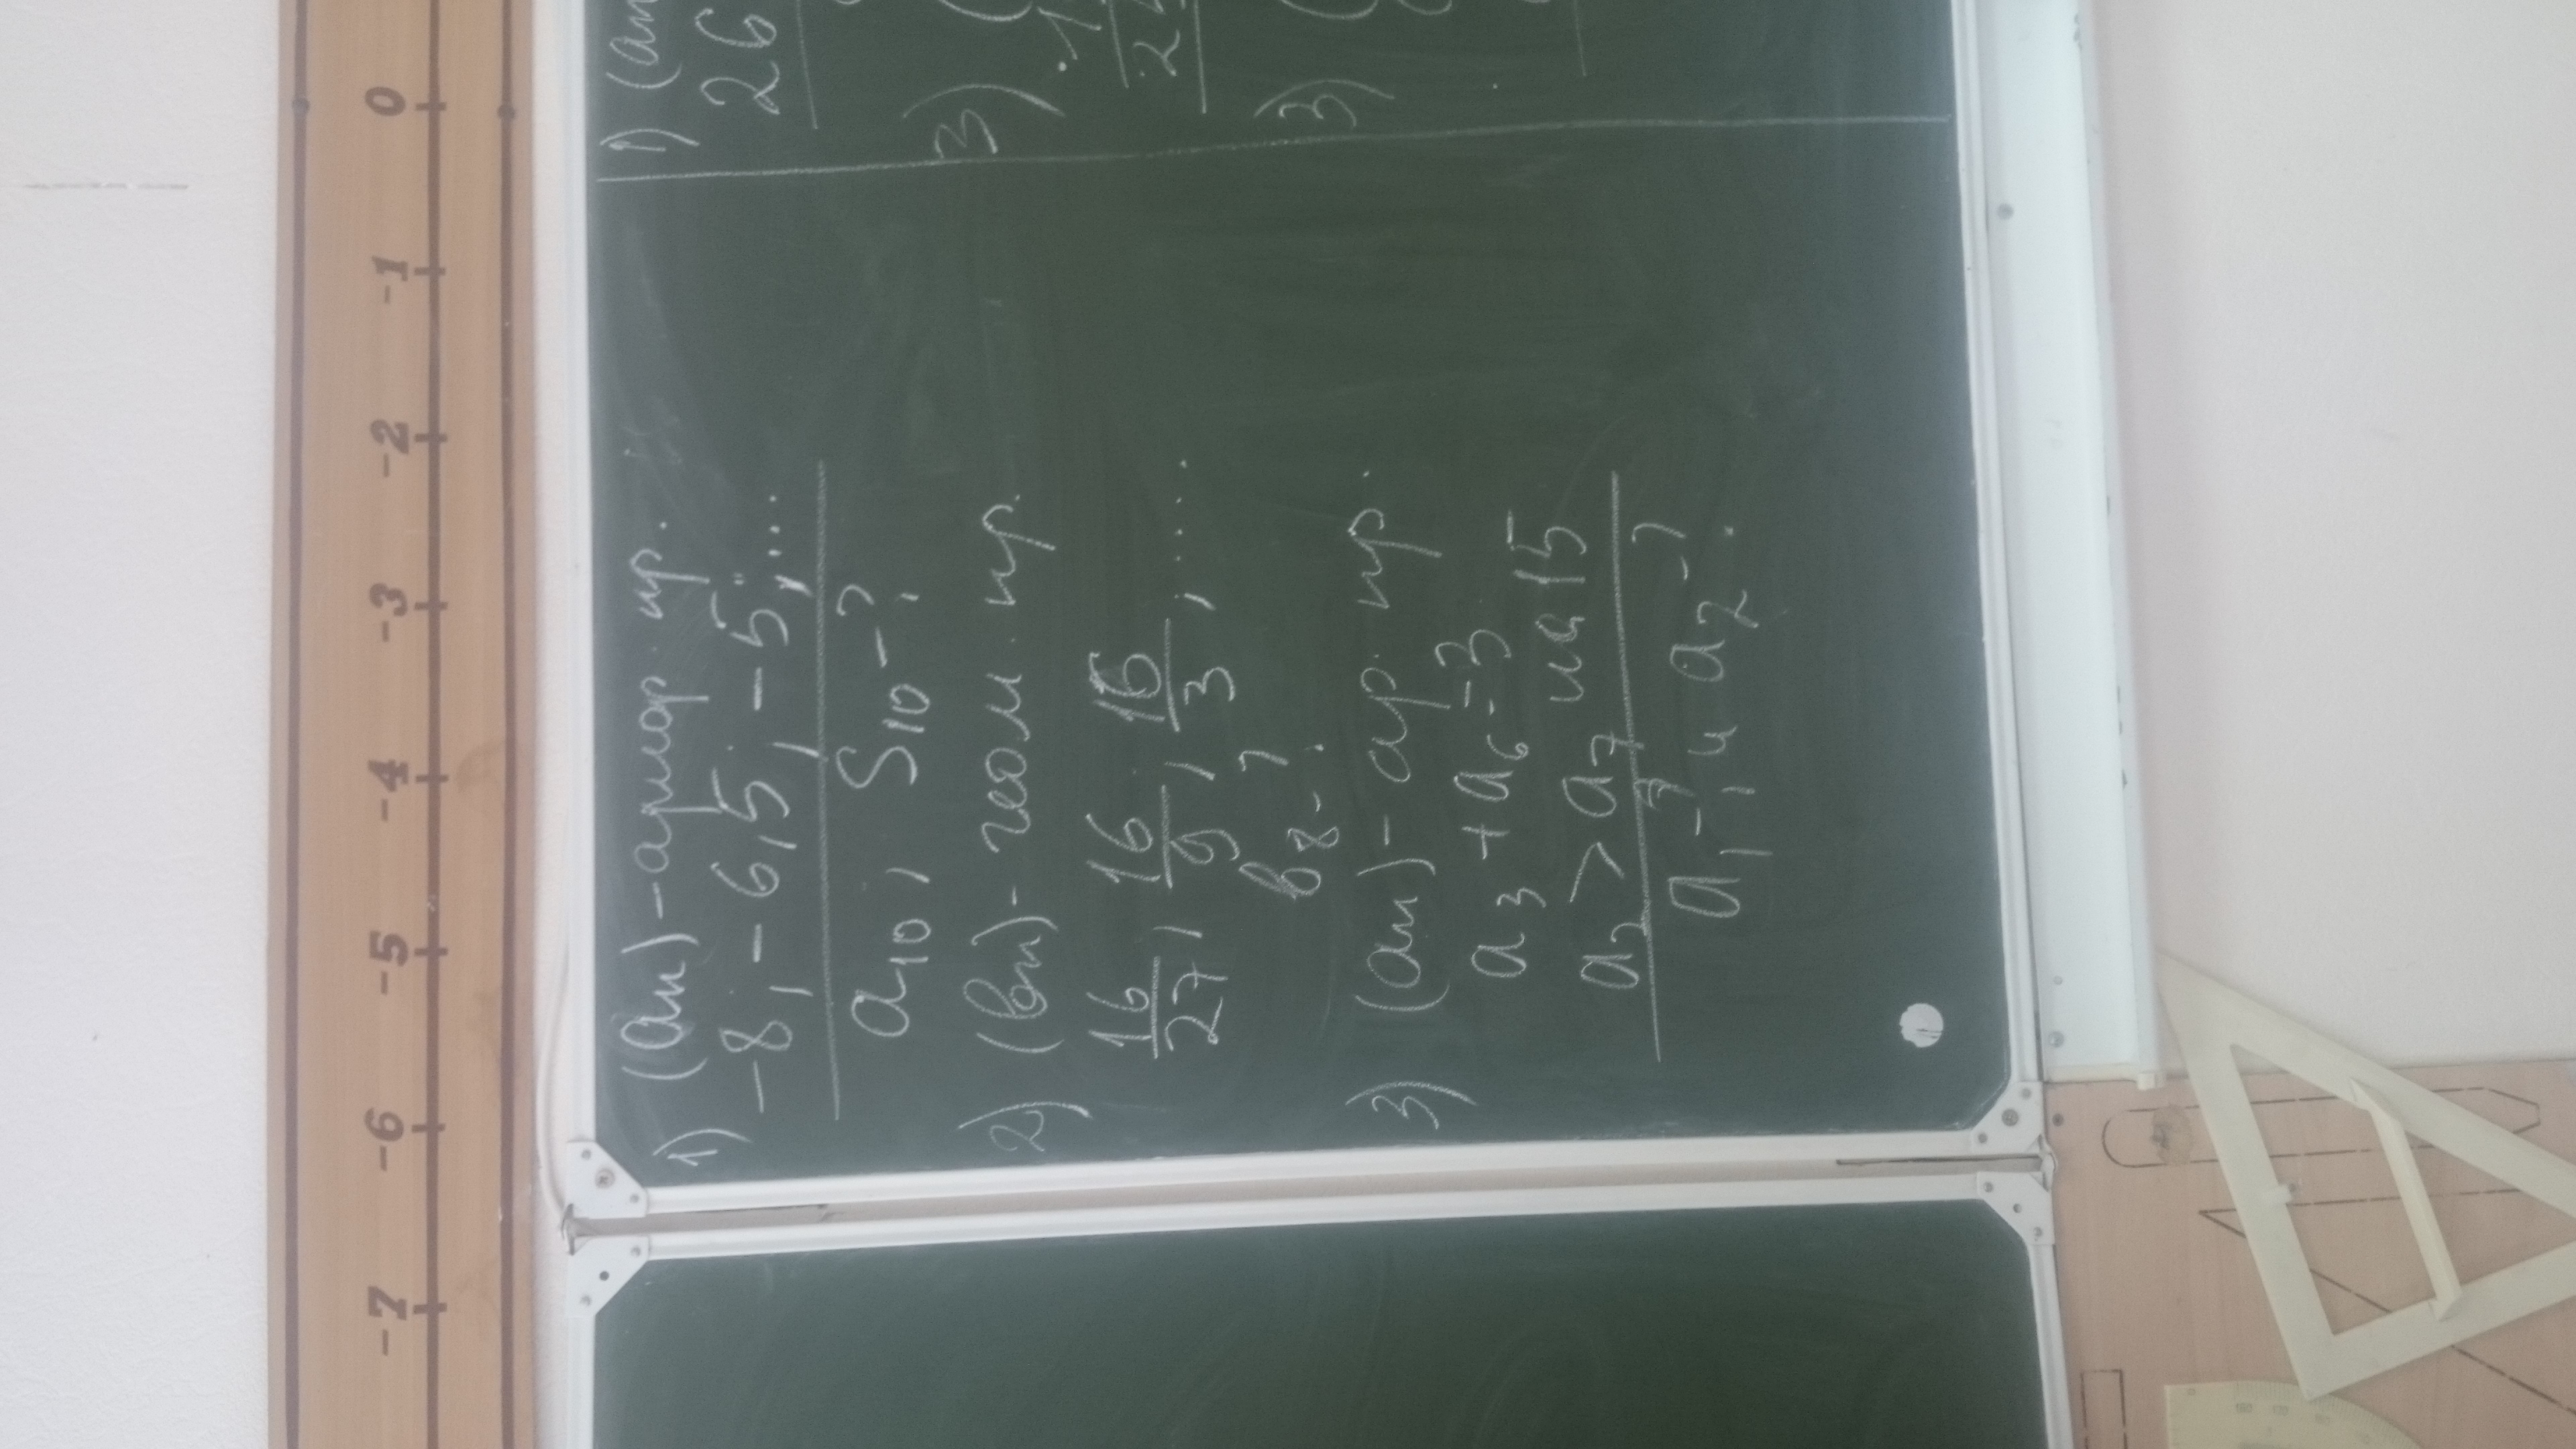 -7 -6 -5 -4 -3 -2 -1 0
1) (an) - арифр. пр.
-8, -6,5, -5, ....
a10, S10 - ?
2) (bn) - геом. пр.
16/27, 16/9, 16/3, ....
b8 - ?
3) (an) - ар. пр.
a3 + a6 = -3
a2 > a7 на 15
a1 - ? и a7 - ?
1) (an
26
3)
3)